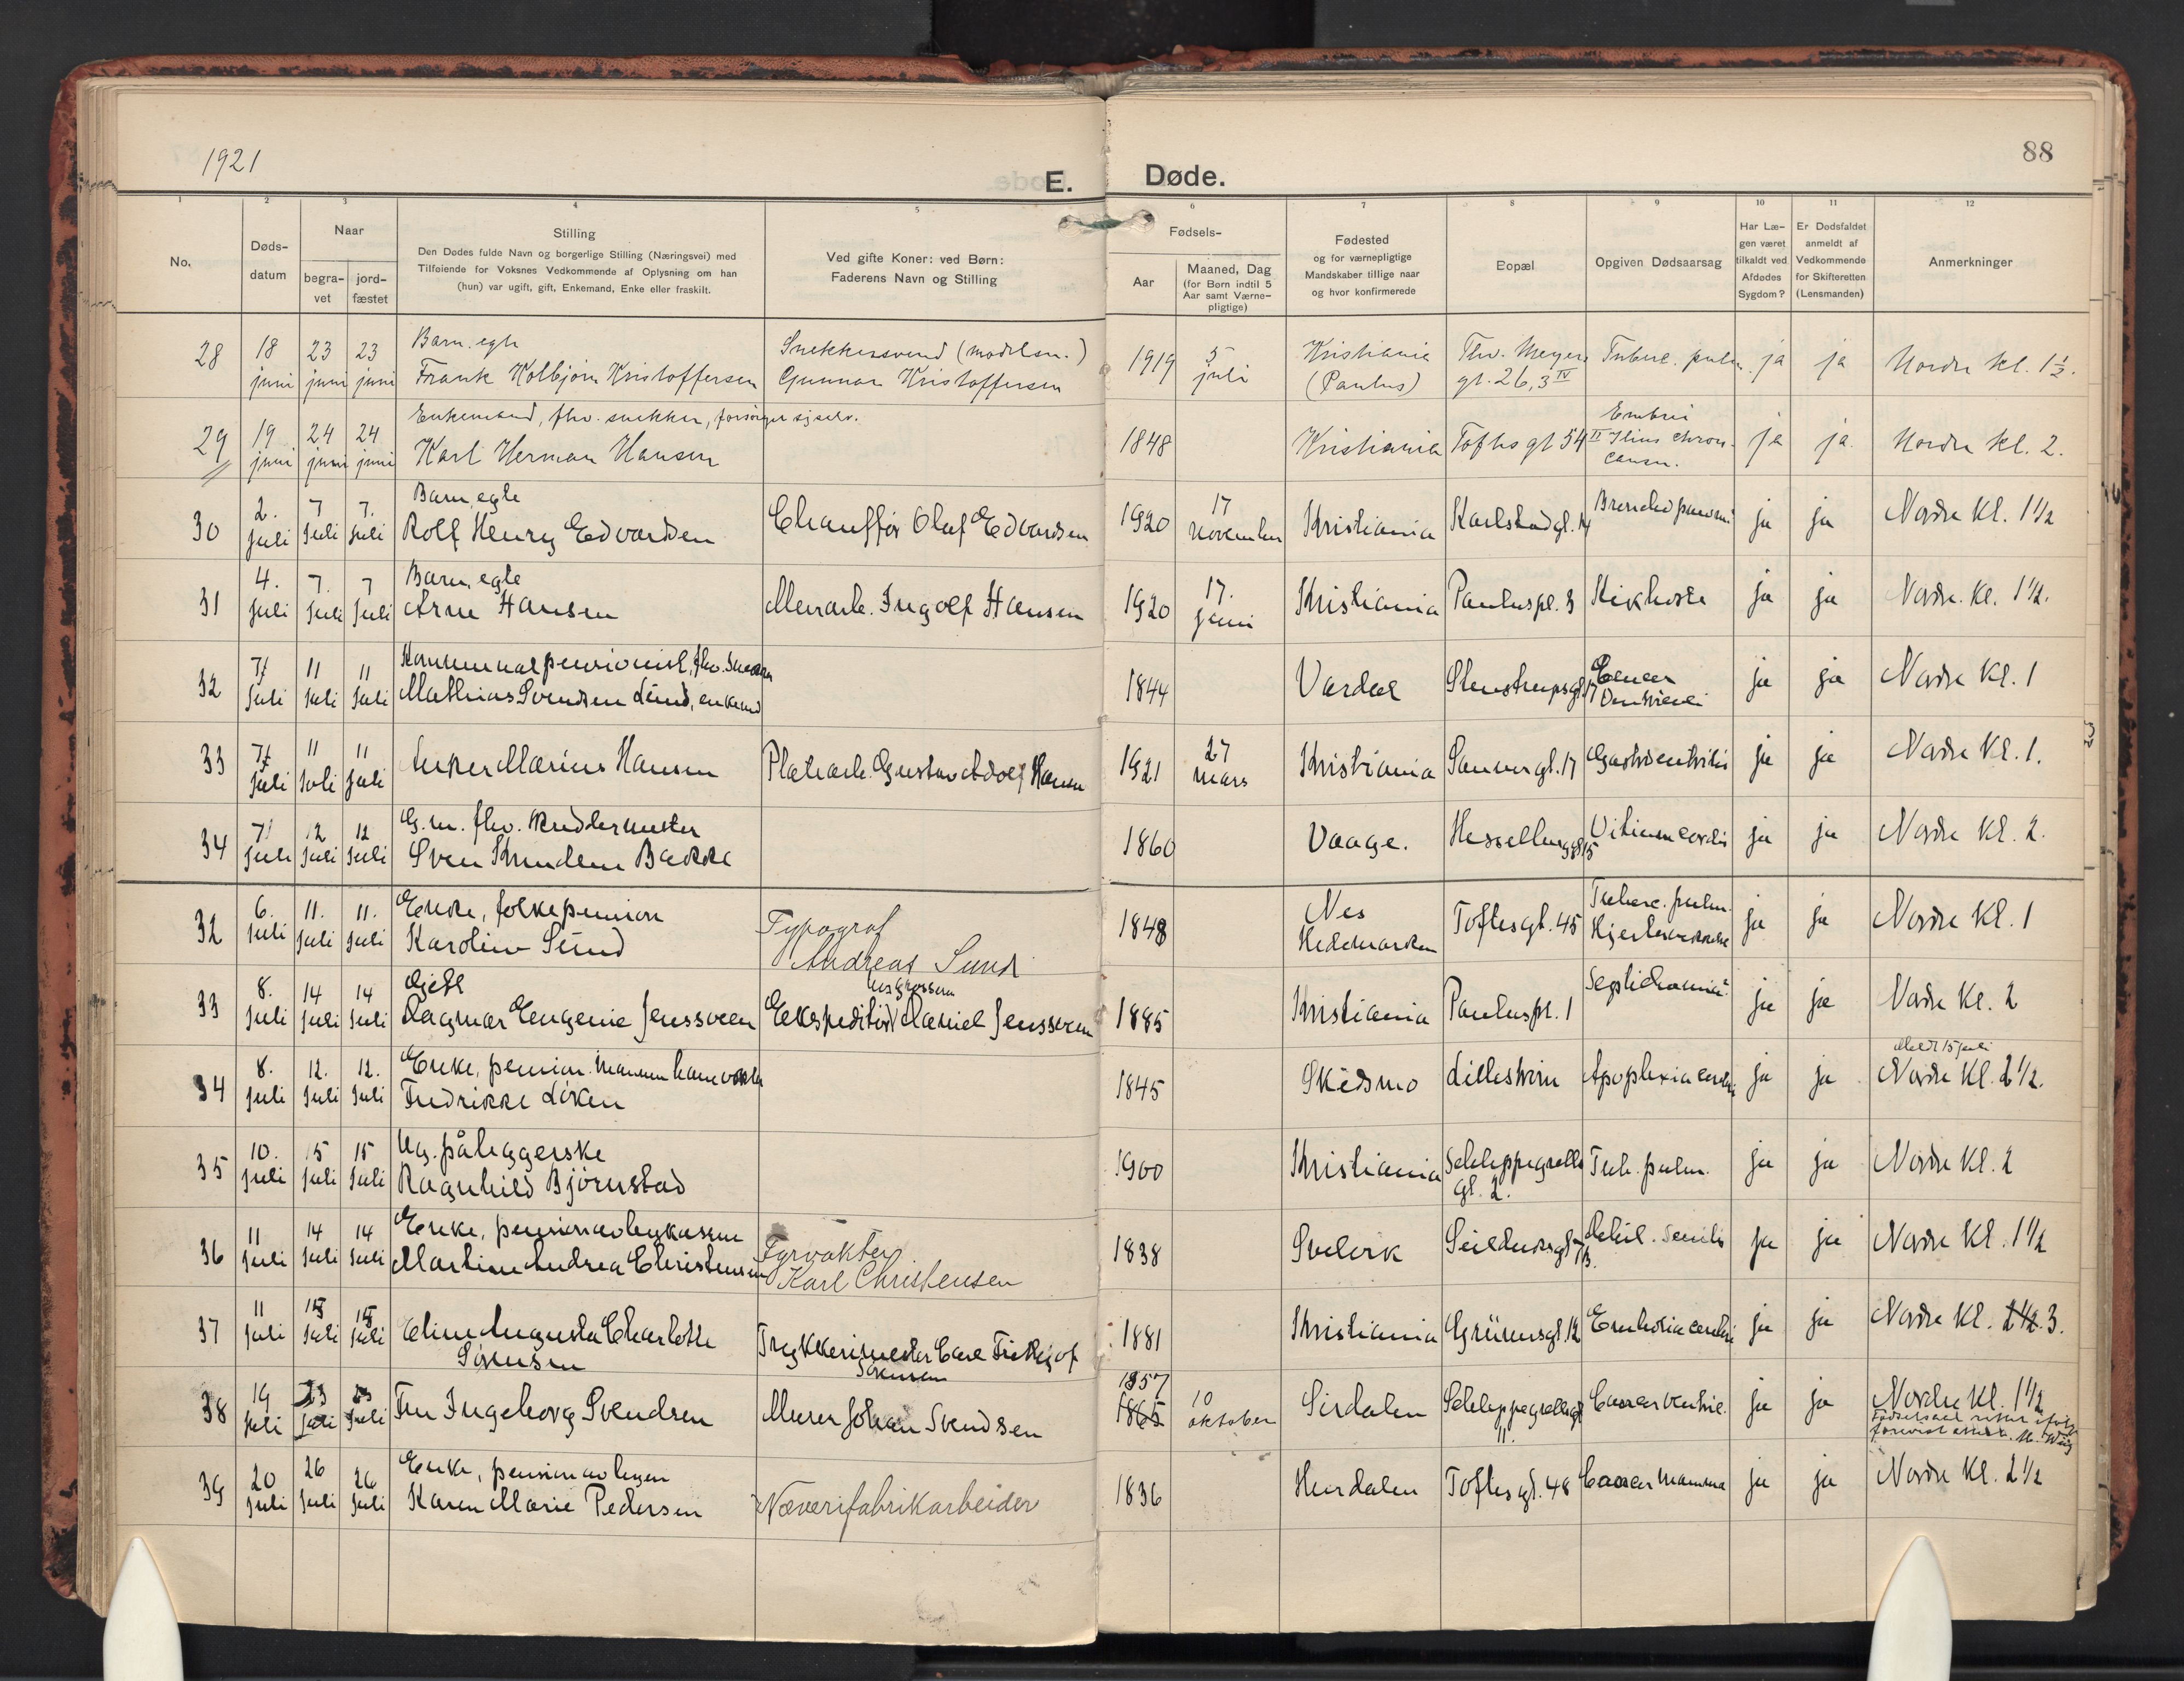 1921
88
E. Døde.
1 2 3 4 5 6 7 8 9 10 11 12
No.
Døds-
datum
Naar
begra-
vet
jord-
fæstet
Stilling
Den Dødes fulde Navn og borgerlige Stilling (Næringsvei) med
Tilføiende for Voksnes Vedkommende af Oplysning om han
(hun) var ugift, gift, Enkemand, Enke eller fraskilt.
Ved gifte Koner: ved Børn:
Faderens Navn og Stilling
Fødsels-
Aar
Maaned, Dag
(for Børn indtil 5
Aar samt Værne-
pligtige)
Fødested
og for værnepligtige
Mandskaber tillige naar
og hvor konfirmerede
Bopæl
Opgiven Dødsaarsag
Har Læ-
gen været
tilkaldt ved
Afdødes
Sygdom?
Er Dødsfaldet
anmeldt af
Vedkommende
for Skifteretten
(Lensmanden)
Anmerkninger
28 18 juni 23 juni 23 juni
Barn, egte
Frank Kolbjørn Kristoffersen
Snekkersvend (modelsn.)
Gunnar Kristoffersen
1919 5 juli
Kristiania
(Paulus)
Thv. Meyers
gt. 26, 3 IV
Tuberc. pulm. ja ja Nordre kl. 1½.
29 19 juni 24 juni 24 juni
Enkemand, fhv. snekker, forsørget sig selv.
Karl Herman Hansen
1848 Kristiania Toftes gt 54
ja ja Nordre kl. 2.
30 2. juli 7 juli 7. juli
Barn, egte
Rolf Henry Edvardsen
Chauffør Olaf Edvardsen
1920 17 november Kristiania Karlstadgt. 14 ja ja Nordre Kl. 1½
31 4. juli 7. juli 7 juli
Barn, egte
Arne Hansen
Murarb. Ingolf Hansen
1920 17. juni Kristiania Pauluspl. 3 Kikhoste ja ja Nordre Kl. 1½.
32 7/ juli 11 juli 11 juli
Kommunal pensionist, fhv.
Mathias Svendsen Lund, enkem
1844 Værdal Stenstrupsgt 17 Cancer
ja ja Nordre Kl. 1
33 7/ juli 11 juli 11 juli
Anker Marius Hansen
Platearb. Gustav Adolf Hansen
1921 27 mars Kristiania Sannergt. 17 Gastroenteritis ja ja Nordre Kl. 1.
34 7/ juli 12 juli 12 juli
G.m. fhv. Muddermester
Sven Knudsen Bakke
1860 Vaage. Hesselbergsgt 15 Vitium cordis ja ja Nordre Kl. 2.
32 6. juli 11. juli 11. juli
Enke, folkepension
Karoline Sund
Typograf
Andreas Sund
1848
Nes
Hedemarken
Toftesgt. 45
Tuberc. pulm.
ja ja Nordre Kl. 1
33 8. juli 14 juli 14 juli
Gift
Dagmar Eugenie Jenssveen
Ekspeditør Daniel Jenssveen
1885 Kristiania Pauluspl. 1 ja ja Nordre Kl. 2
34 8. juli 12. juli 12. juli
Enke, pension.
Fredrikke Løken
1845 Skedsmo Lillestrøm Apoplexia cerebri ja ja
Meldt 15 juli
Nordre Kl. 2½.
35 10. juli 15 juli 15 juli
Ug. påleggerske
Ragnhild Bjørnstad
1900 Kristiania Schleppegrells
gt. 2.
Tub. pulm. ja ja Nordre Kl. 2
36 11 juli 14 juli 14 juli
Enke, pension av
Martine Andrea Christensen
Fyrvokter
Karl Christensen
1838 Svelvik Seilduksgt 7B. Debil. senilis ja ja Nordre Kl. 1½
37 11 juli 15 juli 15 juli
Eline Augusta Charlotte
Sørensen
Trykkerimester Carl Fridtjof
Sørensen
1881 Kristiania Grünersgt. 12 Embolia cerebri ja ja Nordre Kl. 2½. 3.
38 19 juli 23 juli 23 juli
Fru Ingeborg Svendsen
Murer Johan Svendsen
1857
1865
10 oktober Sirdalen Schleppegrellsgt
11.
Cancer ventric. ja ja Nordre Kl. 1½
39 20 juli 26 juli 26 juli
Enke, pension av
Karen Marie Pedersen
Væverifabrikarbeider
1836 Hurdalen Toftesgt. 48 Cancer Mamma ja ja Nordre Kl. 2½